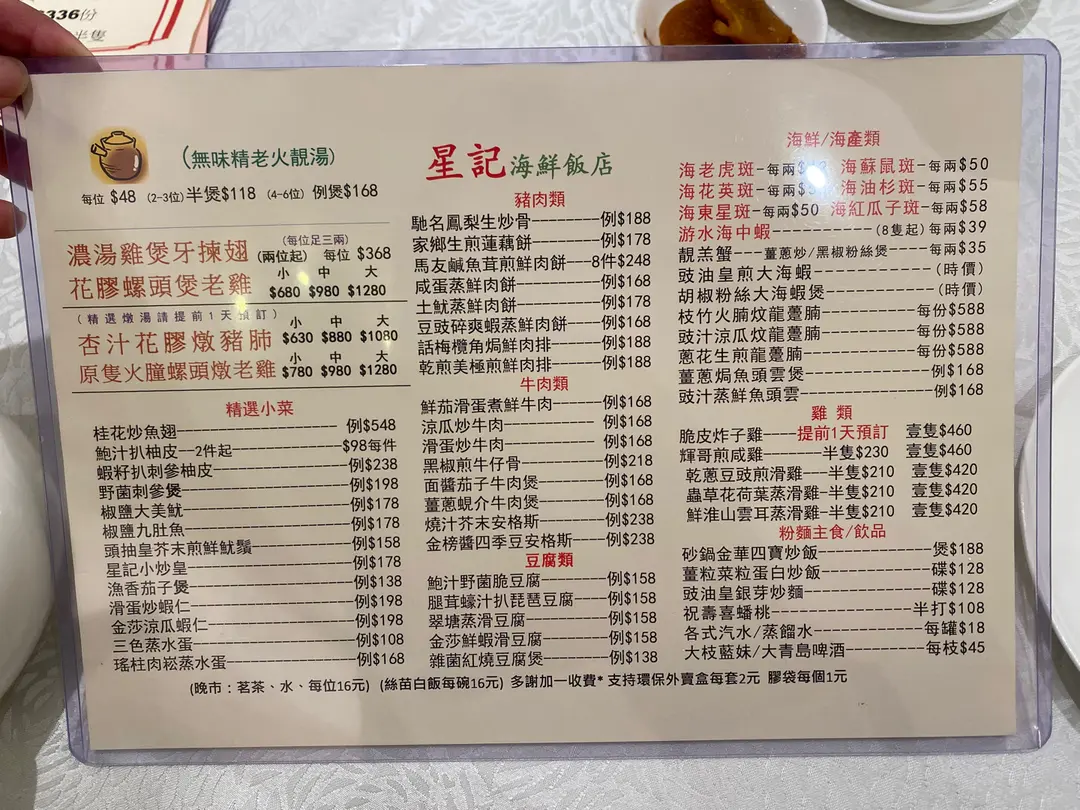 336份
半隻
(無味精老火靚湯)
每位 $48 (2-3位)半煲$118 (4-6位) 例煲$168
濃湯雞煲牙揀翅 (每位足三兩) (兩位起) 每位 $368
小 中 大
花膠螺頭煲老雞 $680 $980 $1280
(精選燉湯請提前1天預訂)
小 中 大
杏汁花膠燉豬肺 $630 $880 $1080
小 中 大
原隻火朣螺頭燉老雞 $780 $980 $1280
精選小菜
桂花炒魚翅 例$548
鮑汁扒柚皮--2件起 $98每件
蝦籽扒刺參柚皮 例$238
野菌刺參煲 例$198
椒鹽大美魷 例$178
椒鹽九肚魚 例$178
頭抽皇芥末煎鮮魷鬚 例$158
星記小炒皇 例$178
漁香茄子煲 例$138
滑蛋炒蝦仁 例$198
金莎涼瓜蝦仁 例$198
三色蒸水蛋 例$108
瑤柱肉崧蒸水蛋 例$168
星記海鮮飯店
豬肉類
馳名鳳梨生炒骨 例$188
家鄉生煎蓮藕餅 例$178
馬友鹹魚茸煎鮮肉餅 8件$248
咸蛋蒸鮮肉餅 例$168
土魷蒸鮮肉餅 例$178
豆豉碎爽蝦蒸鮮肉餅 例$168
話梅欖角焗鮮肉排 例$188
乾煎美極煎鮮肉排 例$188
牛肉類
鮮茄滑蛋煮鮮牛肉 例$168
涼瓜炒牛肉 例$168
滑蛋炒牛肉 例$168
黑椒煎牛仔骨 例$218
面醬茄子牛肉煲 例$168
薑蔥蜆介牛肉煲 例$168
燒汁芥末安格斯 例$238
金榜醬四季豆安格斯 例$238
豆腐類
鮑汁野菌脆豆腐 例$158
腿茸蠔汁扒琵琶豆腐 例$158
翠塘蒸滑豆腐 例$158
金莎鮮蝦滑豆腐 例$158
雜菌紅燒豆腐煲 例$138
海鮮/海產類
海老虎斑-每兩 海蘇鼠斑-每兩$50
海花英斑-每兩 海油杉斑-每兩$55
海東星斑-每兩$50 海紅瓜子斑-每兩$58
游水海中蝦 (8隻起)每兩$39
靚羔蟹---薑蔥炒/黑椒粉絲煲 每兩$35
豉油皇煎大海蝦 (時價)
胡椒粉絲大海蝦煲 (時價)
枝竹火腩炆龍躉腩 每份$588
豉汁涼瓜炆龍躉腩 每份$588
蔥花生煎龍躉腩 每份$588
薑蔥焗魚頭雲煲 例$168
豉汁蒸鮮魚頭雲 例$168
雞 類
脆皮炸子雞 提前1天預訂 壹隻$460
輝哥煎咸雞 半隻$230 壹隻$460
乾蔥豆豉煎滑雞 半隻$210 壹隻$420
蟲草花荷葉蒸滑雞 半隻$210 壹隻$420
鮮淮山雲耳蒸滑雞 半隻$210 壹隻$420
粉麵主食/飲品
砂鍋金華四寶炒飯 煲$188
薑粒菜粒蛋白炒飯 碟$128
豉油皇銀芽炒麵 碟$128
祝壽喜蟠桃 半打$108
各式汽水/蒸餾水 每罐$18
大枝藍妹/大青島啤酒 每枝$45
(晚市：茗茶、水、每位16元) (絲苗白飯每碗16元) 多謝加一收費* 支持環保外賣盒每套2元 膠袋每個1元